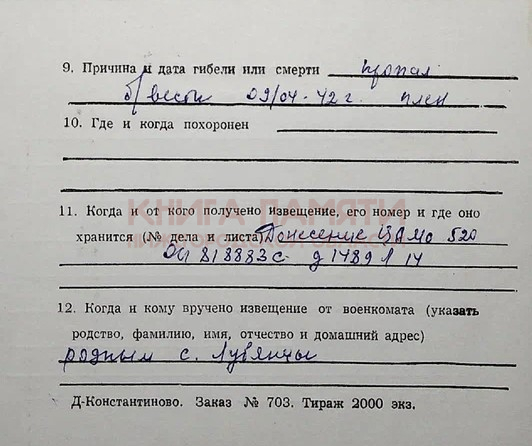 9. Причина и дата гибели или смерти пропал
б/вести 09/04-42 г. плен
10. Где и когда похоронен
КНИГА ПАМЯТИ
11. Когда и от кого получено извещение, его номер и где оно
хранится (№ дела и листа) Донесение ЦАМО 520
оп 818883с д 1489 л 14
12. Когда и кому вручено извещение от военкомата (указать
родство, фамилию, имя, отчество и домашний адрес)
родным с. Лубянцы
Д-Константиново. Заказ № 703. Тираж 2000 экз.